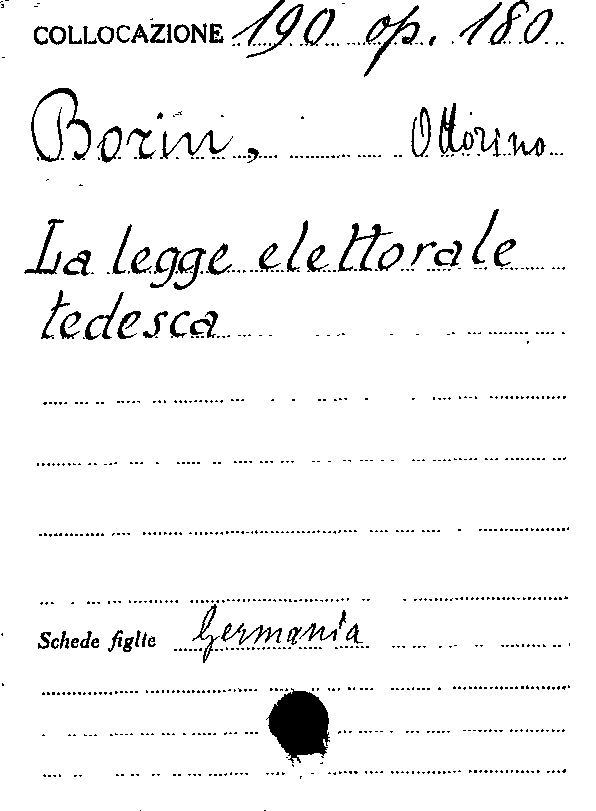 COLLOCAZIONE 190 op. 180
Borin, Ottorino
La legge elettorale
tedesca
Schede figlie Germania